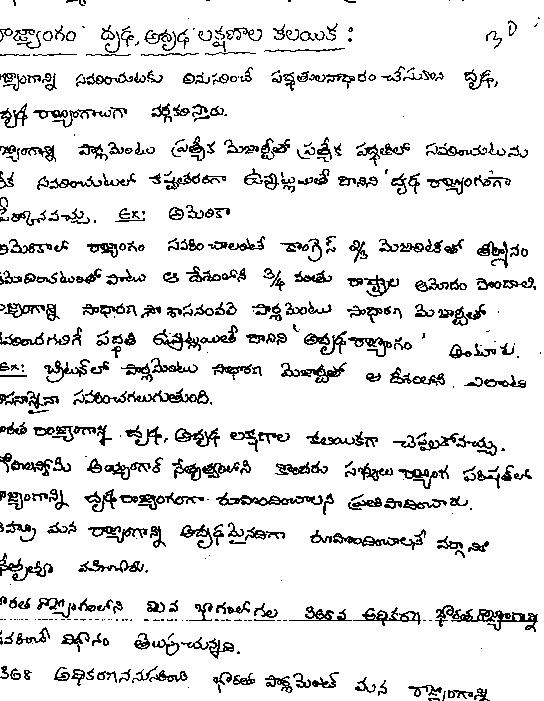 రాజ్యాంగం దృఢ, అదృఢ లక్షణాల కలయిక :
30
రాజ్యాంగాన్ని సవరించుటకు అనుసరించే పద్ధతులనాధారం చేసుకుని దృఢ,
అదృఢ రాజ్యాంగాలుగా వర్గీకరిస్తారు.
రాజ్యాంగాన్ని పార్లమెంటు ప్రత్యేక మెజార్టీతో ప్రత్యేక పద్ధతిలో సవరించుటను
సవరించుటలో కష్టతరంగా ఉన్నట్లయితే దానిని 'దృఢ రాజ్యాంగంగా
పేర్కొనవచ్చు. Ex: అమెరికా
అమెరికాలో రాజ్యాంగం సవరించాలంటే కాంగ్రెస్ 2/3 మెజారిటీతో తీర్మానం
ఆమోదించటంతో పాటు ఆ దేశంలోని 3/4 వంతు రాష్ట్రాల ఆమోదం పొందాలి.
రాజ్యాంగాన్ని సాధారణ శాసనంవలె పార్లమెంటు సాధారణ మెజార్టీతో
సవరించగలిగే పద్ధతి ఉన్నట్లయితే దానిని 'అదృఢ రాజ్యాంగం' అంటారు.
Ex: బ్రిటన్‌లో పార్లమెంటు సాధారణ మెజార్టీతో ఆ దేశంలోని ఎలాంటి
శాసనాన్నైనా సవరించగలుగుతుంది.
భారత రాజ్యాంగాన్ని దృఢ, అదృఢ లక్షణాల కలయికగా చెప్పుకోవచ్చు.
గోపాలస్వామి అయ్యంగార్ నేతృత్వంలోని కొందరు సభ్యులు రాజ్యాంగ పరిషత్‌లో
రాజ్యాంగాన్ని దృఢ రాజ్యాంగంగా రూపొందించాలని ప్రతిపాదించారు.
నెహ్రూ మన రాజ్యాంగాన్ని అదృఢమైనదిగా రూపొందించాలనే వర్గానికి
నేతృత్వం వహించారు.
భారత రాజ్యాంగంలోని భాగంలోగల 368వ అధికరణ భారత రాజ్యాంగాన్ని
సవరించే విధానం తెలుపుచున్నది.
368 అధికరణననుసరించి భారత పార్లమెంట్ మన రాజ్యాంగాన్ని